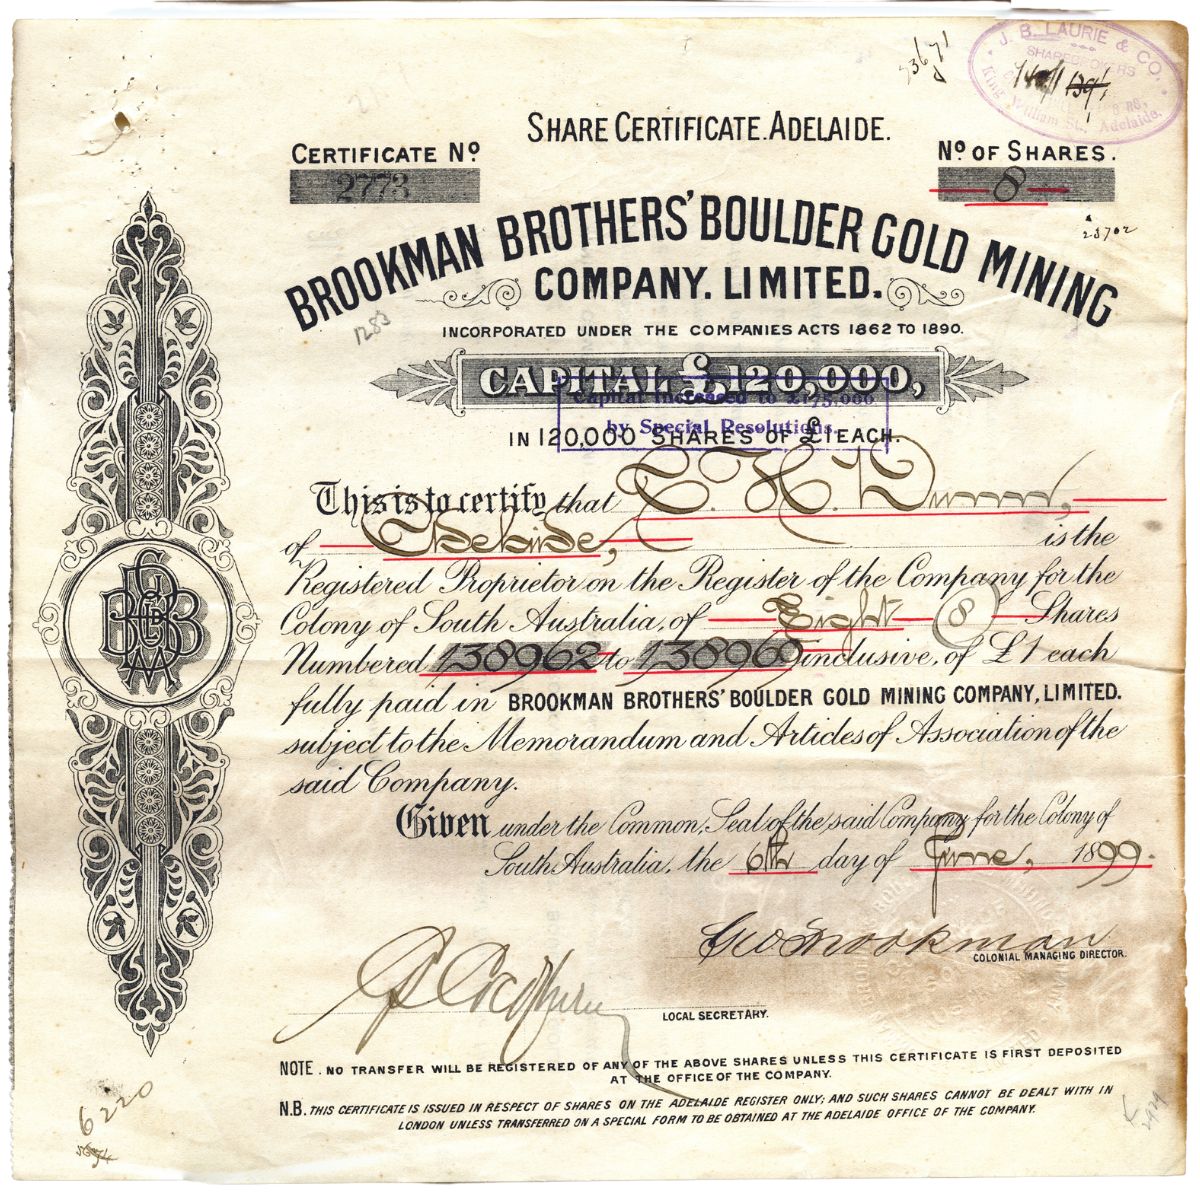 33671
J. B. LAURIE & CO.
SHAREBROKERS
King William St., Adelaide.
SHARE CERTIFICATE. ADELAIDE.
CERTIFICATE No
2773
No OF SHARES.
8
23702
BROOKMAN BROTHERS' BOULDER GOLD MINING
COMPANY. LIMITED.
1283
INCORPORATED UNDER THE COMPANIES ACTS 1862 TO 1890.
CAPITAL £120,000,
Capital Increased to £175,000
by Special Resolutions.
IN 120,000 SHARES OF £1 EACH.
This is to certify that C. H. Dunn,
of Adelaide, is the
Registered Proprietor on the Register of the Company for the
Colony of South Australia, of Eight 8 Shares
Numbered 138962 to 138969 inclusive, of £1 each
fully paid in BROOKMAN BROTHERS' BOULDER GOLD MINING COMPANY, LIMITED.
subject to the Memorandum and Articles of Association of the
said Company.
Given under the Common Seal of the said Company for the Colony of
South Australia, the 6th day of June, 1899.
Geo Brookman
COLONIAL MANAGING DIRECTOR.
LOCAL SECRETARY.
NOTE. NO TRANSFER WILL BE REGISTERED OF ANY OF THE ABOVE SHARES UNLESS THIS CERTIFICATE IS FIRST DEPOSITED
AT THE OFFICE OF THE COMPANY.
N.B. THIS CERTIFICATE IS ISSUED IN RESPECT OF SHARES ON THE ADELAIDE REGISTER ONLY; AND SUCH SHARES CANNOT BE DEALT WITH IN
LONDON UNLESS TRANSFERRED ON A SPECIAL FORM TO BE OBTAINED AT THE ADELAIDE OFFICE OF THE COMPANY.
6220